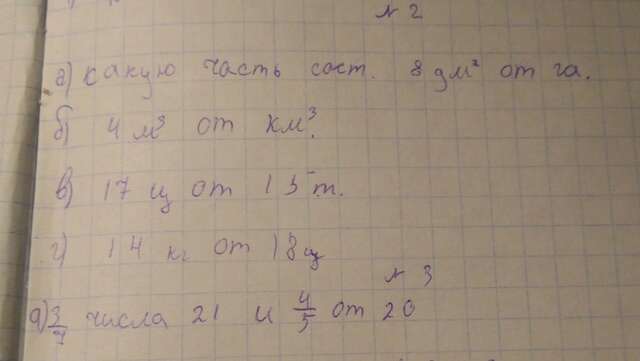 № 2
а) какую часть сост. 8 дм² от га.
б) 4 м³ от км³.
в) 17 ц от 15 т.
г) 14 кг от 18 ц
№ 3
а) 3/7 числа 21 и 4/5 от 20